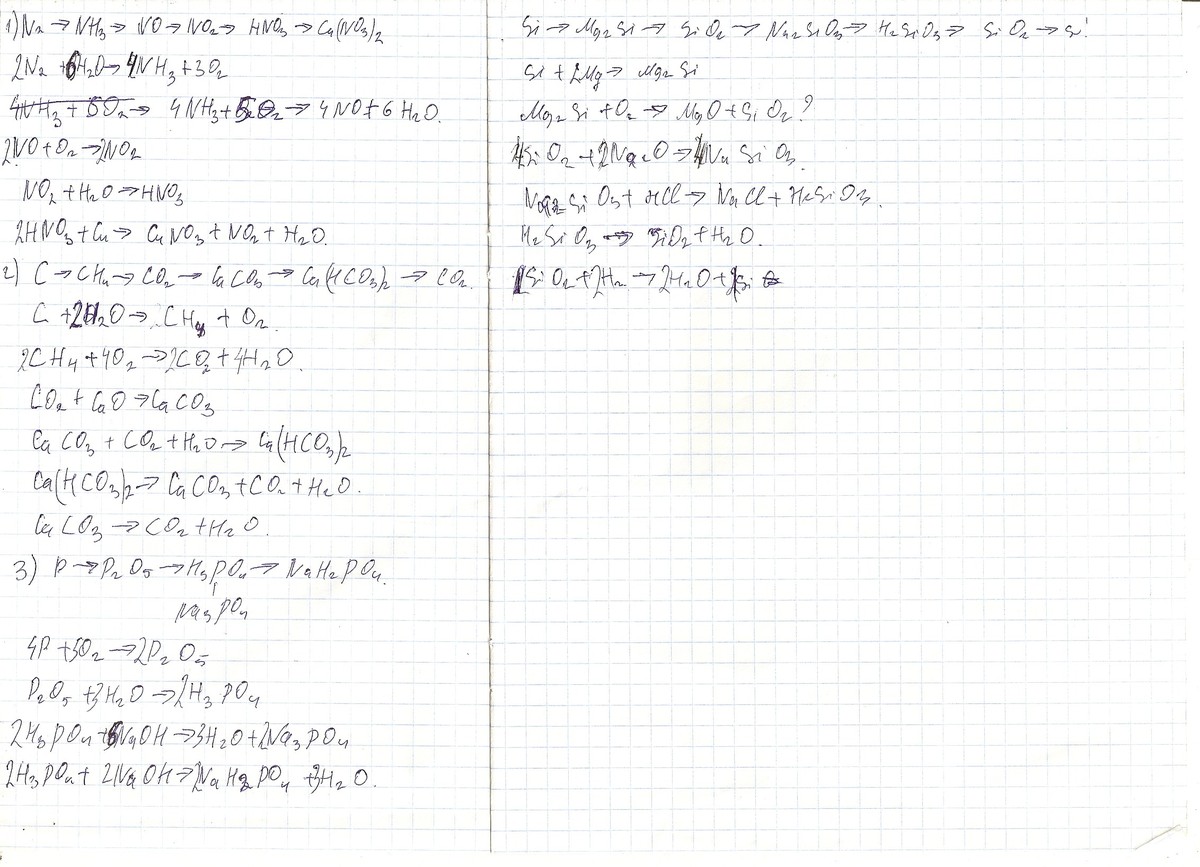 1) N₂ → NH₃ → NO → NO₂ → HNO₃ → Ca(NO₃)₂
2N₂ + 6H₂O → 4NH₃ + 3O₂
4NH₃ + 5O₂ → 4NH₃ + 5O₂ → 4NO + 6H₂O.
2NO + O₂ → 2NO₂
NO₂ + H₂O → HNO₃
2HNO₃ + Cu → CuNO₃ + NO₂ + H₂O.
2) C → CH₄ → CO₂ → CaCO₃ → Ca(HCO₃)₂ → CO₂.
C + 2H₂O → CH₄ + O₂.
2CH₄ + 4O₂ → 2CO₂ + 4H₂O.
CO₂ + CaO → CaCO₃
CaCO₃ + CO₂ + H₂O → Ca(HCO₃)₂
Ca(HCO₃)₂ → CaCO₃ + CO₂ + H₂O.
CaCO₃ → CO₂ + H₂O.
3) P → P₂O₅ → H₃PO₄ → NaH₂PO₄.
Na₃PO₄
4P + 5O₂ → 2P₂O₅
P₂O₅ + 3H₂O → 2H₃PO₄
2H₃PO₄ + 6NaOH → 3H₂O + 2Na₃PO₄
2H₃PO₄ + 2NaOH → 2NaH₂PO₄ + 3H₂O.
Si → Mg₂Si → SiO₂ → Na₂SiO₃ → H₂SiO₃ → SiO₂ → Si
Si + 2Mg → Mg₂Si
Mg₂Si + O₂ → MgO + SiO₂?
SiO₂ + Na₂O → NaSiO₃.
Na₂SiO₃ + HCl → NaCl + H₂SiO₃.
H₂SiO₃ → SiO₂ + H₂O.
SiO₂ + 2H₂ → 2H₂O + Si